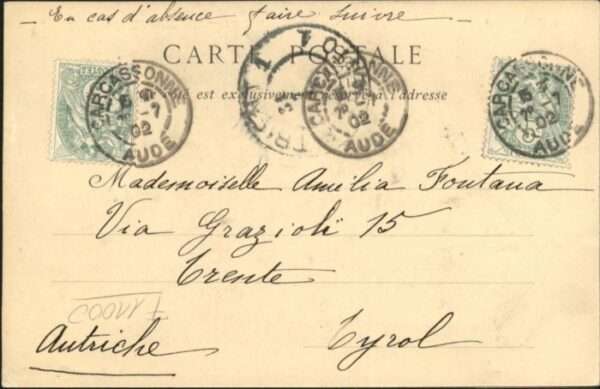 — En cas d'absence faire suivre —
CARTE POSTALE
est exclusivement réservé à l'adresse
CARCASSONNE
7
02
AUDE
CARCASSONNE
7
02
AUDE
CARCASSONNE
7
02
AUDE
Mademoiselle Amélia Fontana
Via Grazioli 15
Trente
Autriche Tyrol